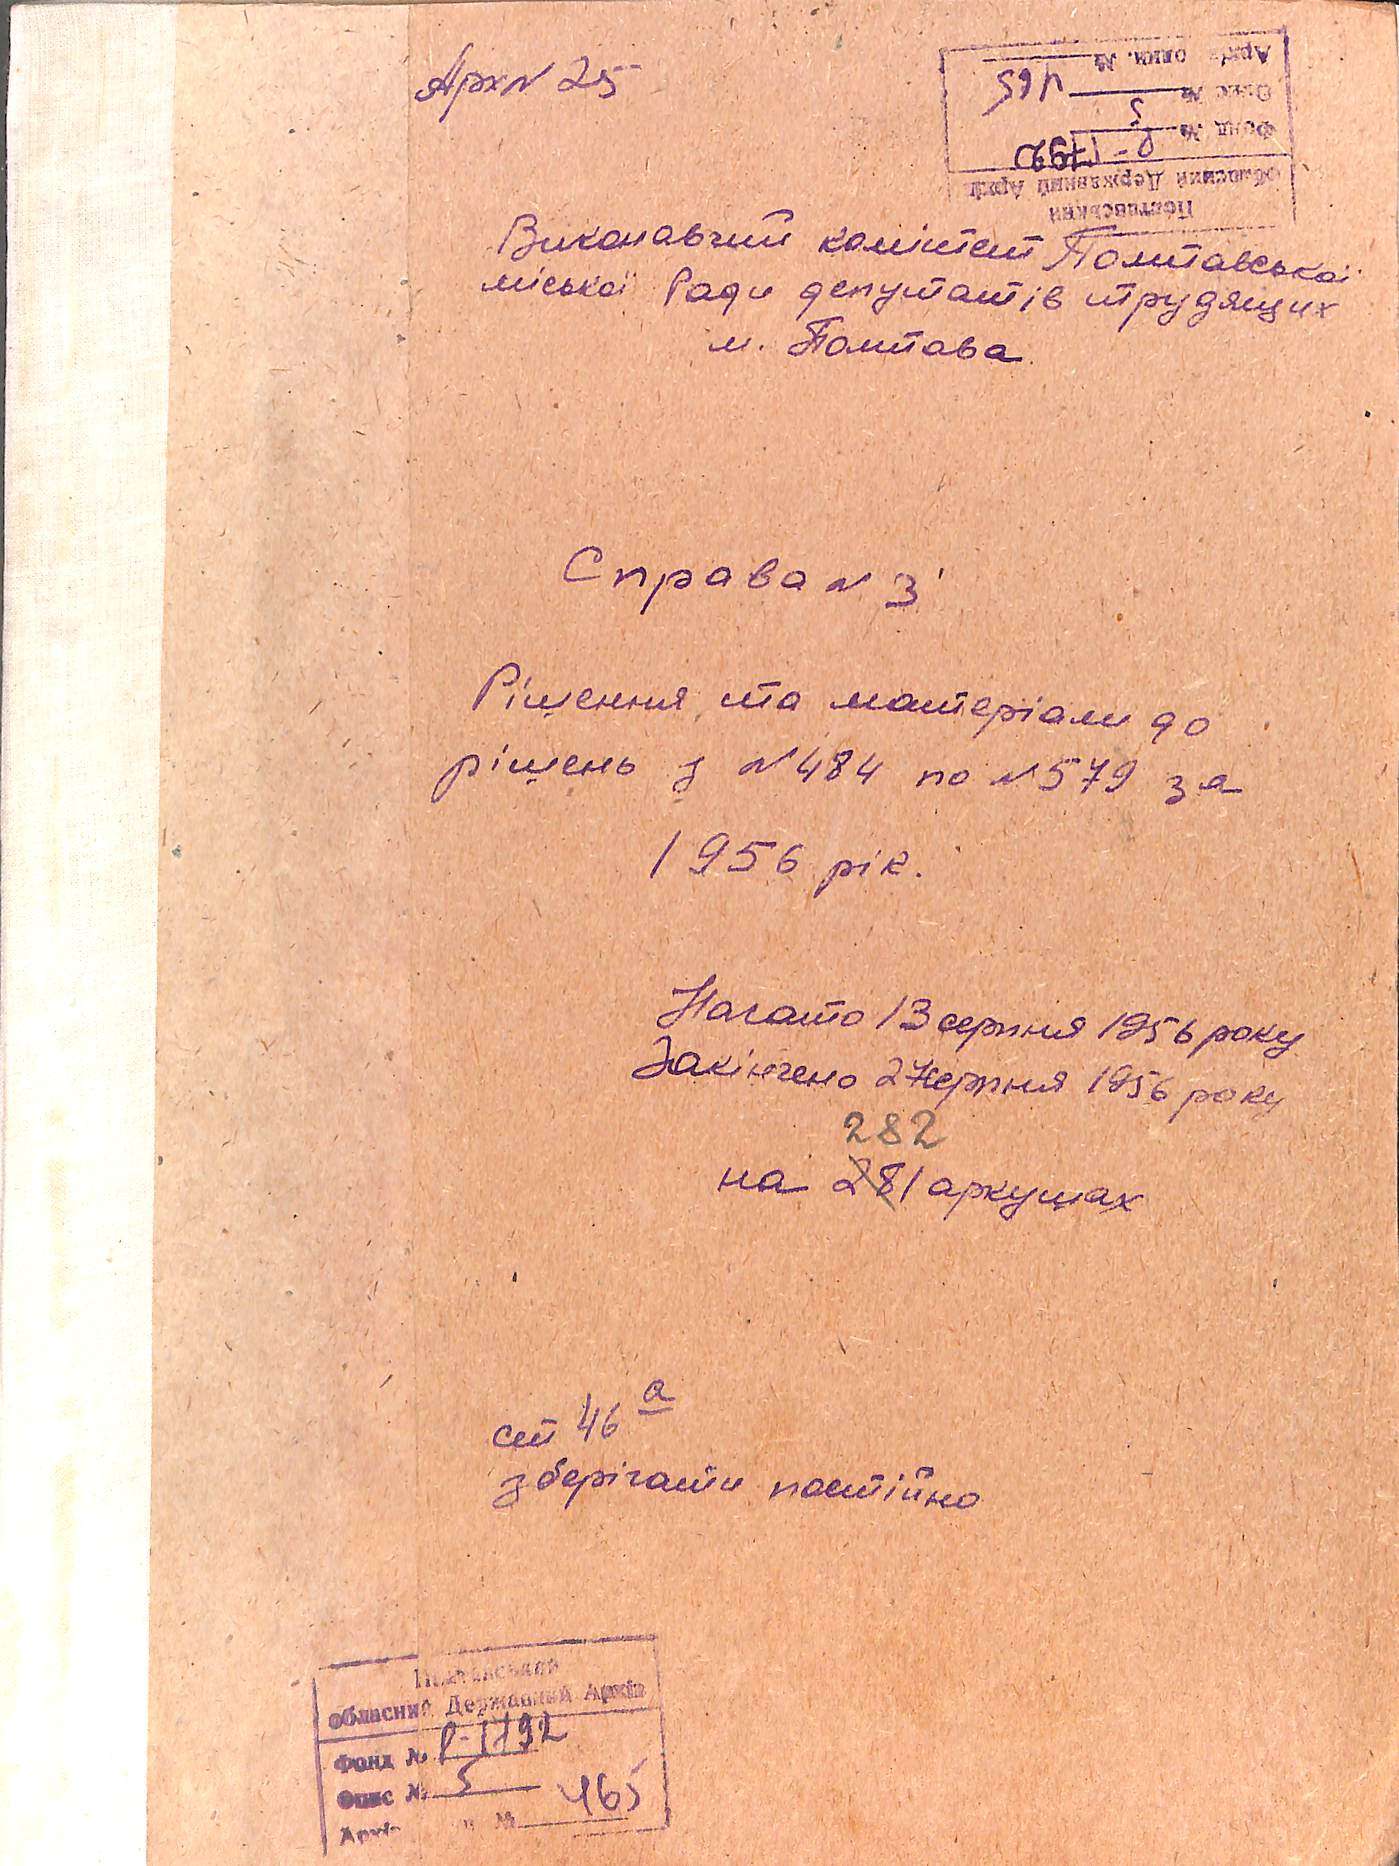 Арх № 25
Полтавський
Обласний Державний Архів
Фонд № Р-1792
Опис № 5
Архів. один. № 465
Виконавчий комітет Полтавської
міської Ради депутатів трудящих
м. Полтава
Справа № 3
Рішення та матеріали до
рішень з № 484 по № 579 за
1956 рік.
Начато 13 серпня 1956 року
Закінчено 27 серпня 1956 року
282
на 281 аркушах
ст 46 а
зберігати постійно
Полтавський
Обласний Державний Архів
Фонд № Р-1792
Опис № 5
№ 465